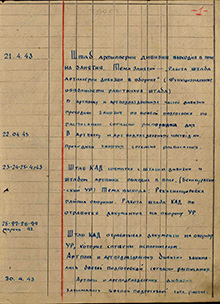 21.4.43 Штаб артиллерии дивизии выходил в поле
на занятия. Тема занятия – Работа штаба
артиллерии дивизии в обороне. (Функциональные
обязанности работников штаба)
В артполку и артподразделениях частей дивизии
проходили занятия по боевой подготовке по
расписанию согласно программы.
22.04.43 В артполку и арт подразделениях частей
проходили занятия согласно расписания.
23-24-25-4/43 Штаб КАД совместно с штабом дивизии и
штабом артполка выходил в поле,
УР) Тема выхода: Рекогносцировка
района обороны. Работа штаба КАД по
отработке документов на оборону УР.
Штаб КАД отрабатывал документы на оборону
УР, которые согласно
Артполк и артподразделения дивизии занима-
лись боевой подготовкой согласно расписания.
30.4.43 Артполк и артподразделения дивизии
занимались боевой подготовкой